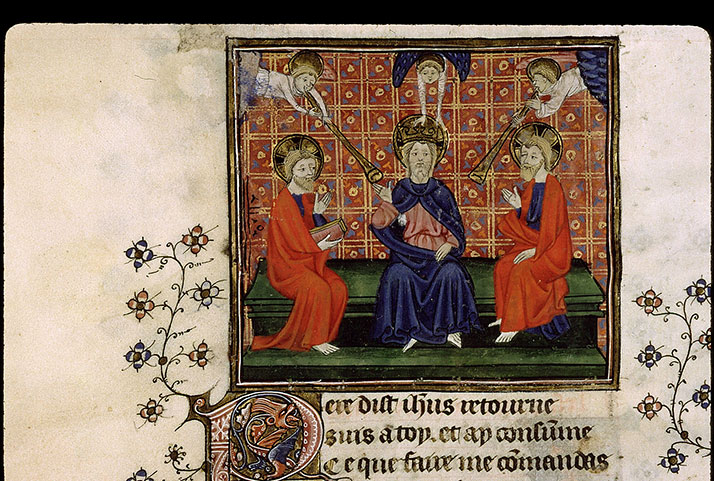 Pere dist ihus retourne
suis a toy. et ay consūme
Ce que faire me cōmandas